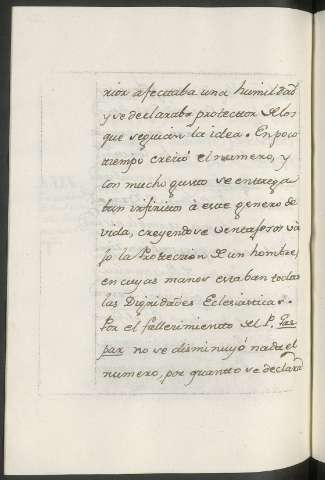 rior afectaba una humildad
y se declaraba protector de los
que seguian la idea. En poco
tiempo creció el numero, y
con mucho gusto se entrega
ban infinitos à este genero de
vida, creyendose ventajosos ba
jo la Proteccion de un hombre,
en cuyas manos estaban todas
las Dignidades Eclesiasticas.
Por el fallecimiento del P. Gas
par no se disminuyó nada el
numero, por quanto se declara